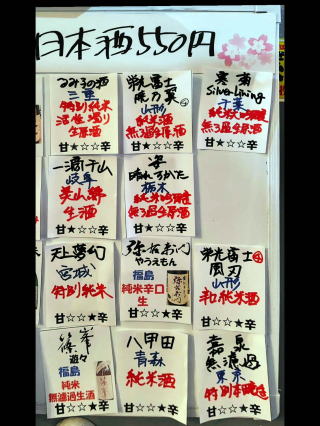 日本酒550円
るみ子の酒
三重
特別純米
活性濁り
生原酒
甘★☆☆辛
栄光冨士
山形
純米酒
無ろ過生原酒
甘★☆☆辛
寒菊
Silver Lining
千葉
純米大吟醸
無ろ過生原酒
甘★☆☆辛
一滴千山
岐阜
美山錦
生酒
甘☆★☆辛
姿
栃木
純米吟醸
無ろ過生原酒
甘☆★☆辛
天上夢幻
宮城
特別純米
甘☆☆★辛
弥右衛門
やうえもん
福島
純米辛口
生
甘☆☆★辛
栄光冨士
風刃
山形
辛口純米酒
甘☆☆★辛
篠峯
遊々
福島
純米
無濾過生酒
甘☆☆★辛
八甲田
青森
純米酒
甘☆☆★辛
嘉泉
無濾過
東京
特別本醸造
甘☆☆★辛